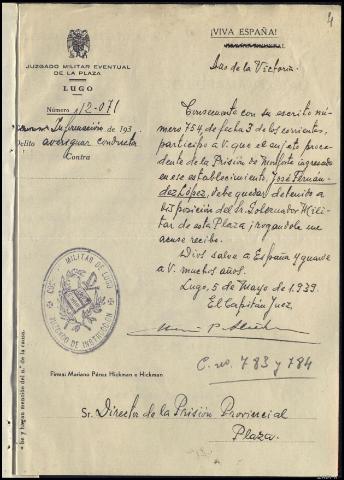 4
¡VIVA ESPAÑA!
Año de la Victoria.
JUZGADO MILITAR EVENTUAL
DE LA PLAZA
LUGO
Número 12-071
Información de 193
Delito averiguar conducta
Contra
Consecuente con su escrito nú-
mero 754, de fecha 3 de los corrientes,
participo a V. que el sujeto proce-
dente de la Prisión de Monforte ingresado
en ese establecimiento, José Fernán-
dez López, debe quedar detenido a
disposición del Sr. Gobernador Mili-
tar de esta Plaza; rogandole me
acuse recibo.
Dios salve a España y guarde
a V. muchos años.
Lugo, 5 de Mayo de 1.939.
El Capitán Juez.
MILITAR DE LUGO
JUZGADO DE INSTRUCCIÓN
C. no. 783 y 784
Firma: Mariano Pérez Hickman e Hickman
Sr. Director de la Prisión Provincial
Plaza.
se y hagan mención del n.º de la causa.